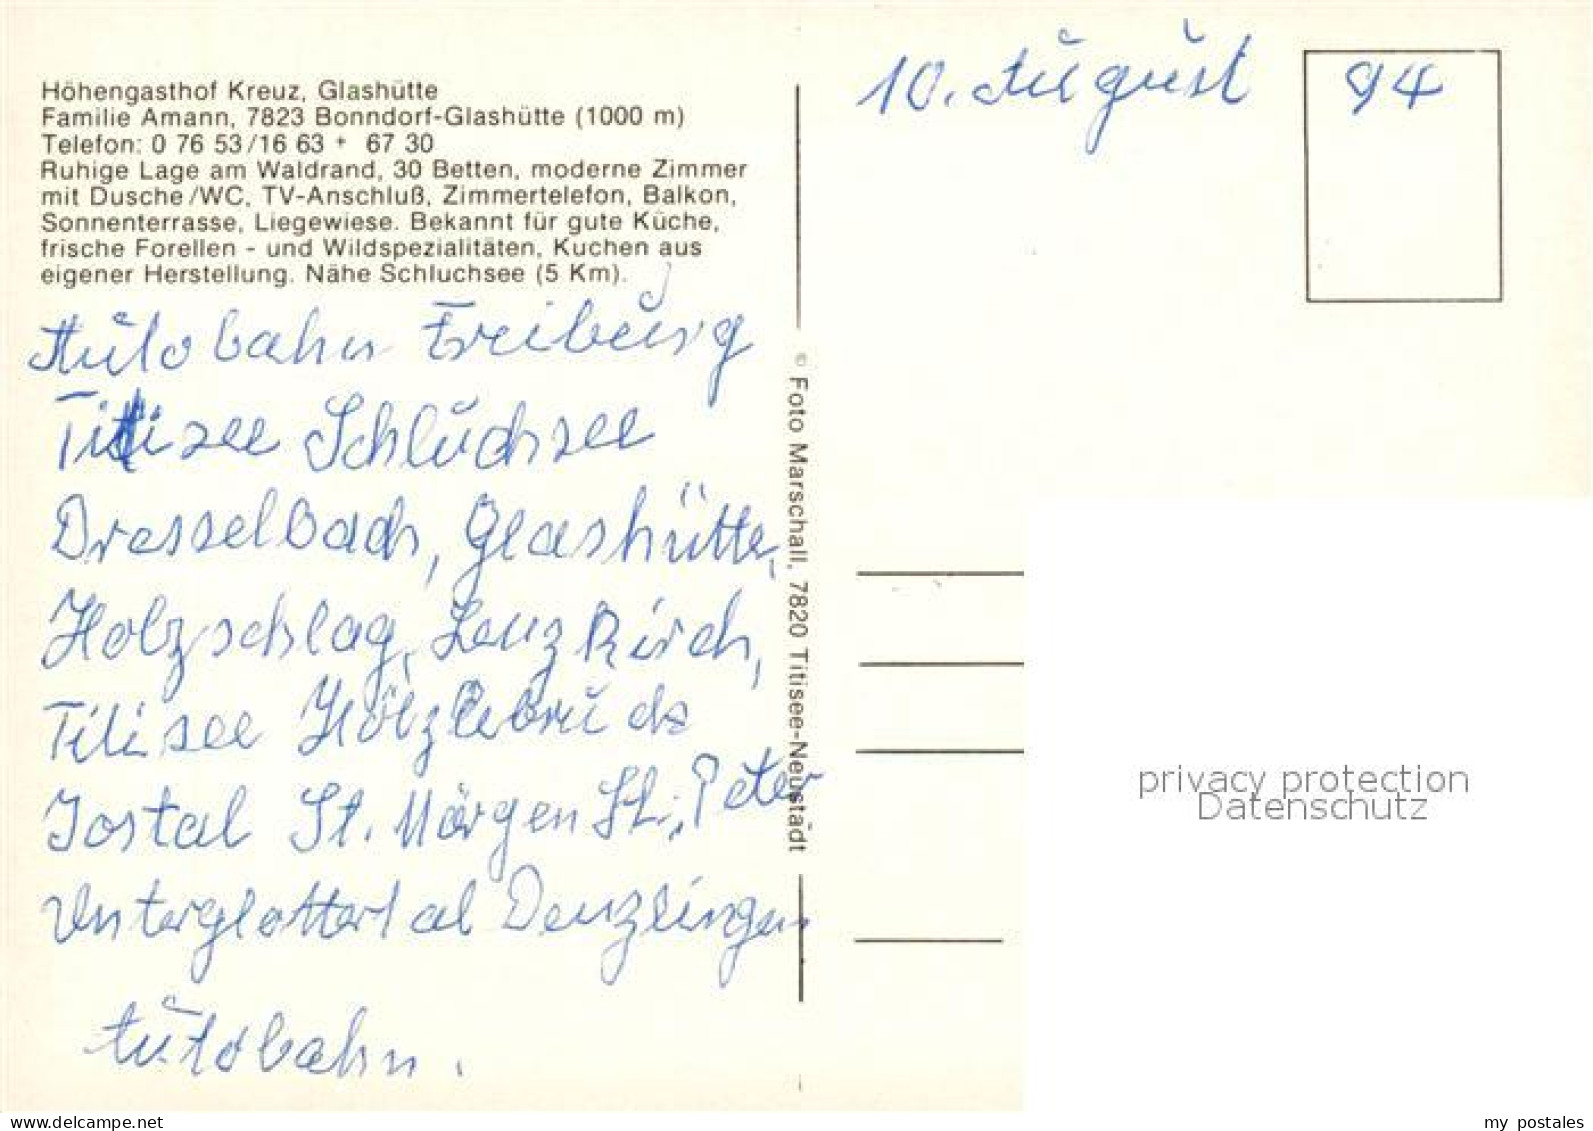 Höhengasthof Kreuz, Glashütte
Familie Amann, 7823 Bonndorf-Glashütte (1000 m)
Telefon: 0 76 53/16 63 + 67 30
Ruhige Lage am Waldrand, 30 Betten, moderne Zimmer
mit Dusche/WC, TV-Anschluß, Zimmertelefon, Balkon,
Sonnenterrasse, Liegewiese. Bekannt für gute Küche,
frische Forellen - und Wildspezialitäten, Kuchen aus
eigener Herstellung. Nähe Schluchsee (5 Km).
Autobahn Freiburg
Titisee Schluchsee
Dresselbach, Glashütte,
Holzschlag, Lenzkirch,
Titisee Hölzlebruck
Jostal St. Mörgen St. Peter
Unterglottertal Denzlingen
Autobahn.
© Foto Marschall, 7820 Titisee-Neustadt
10. August 94
privacy protection
Datenschutz
delcampe.net
my_postales